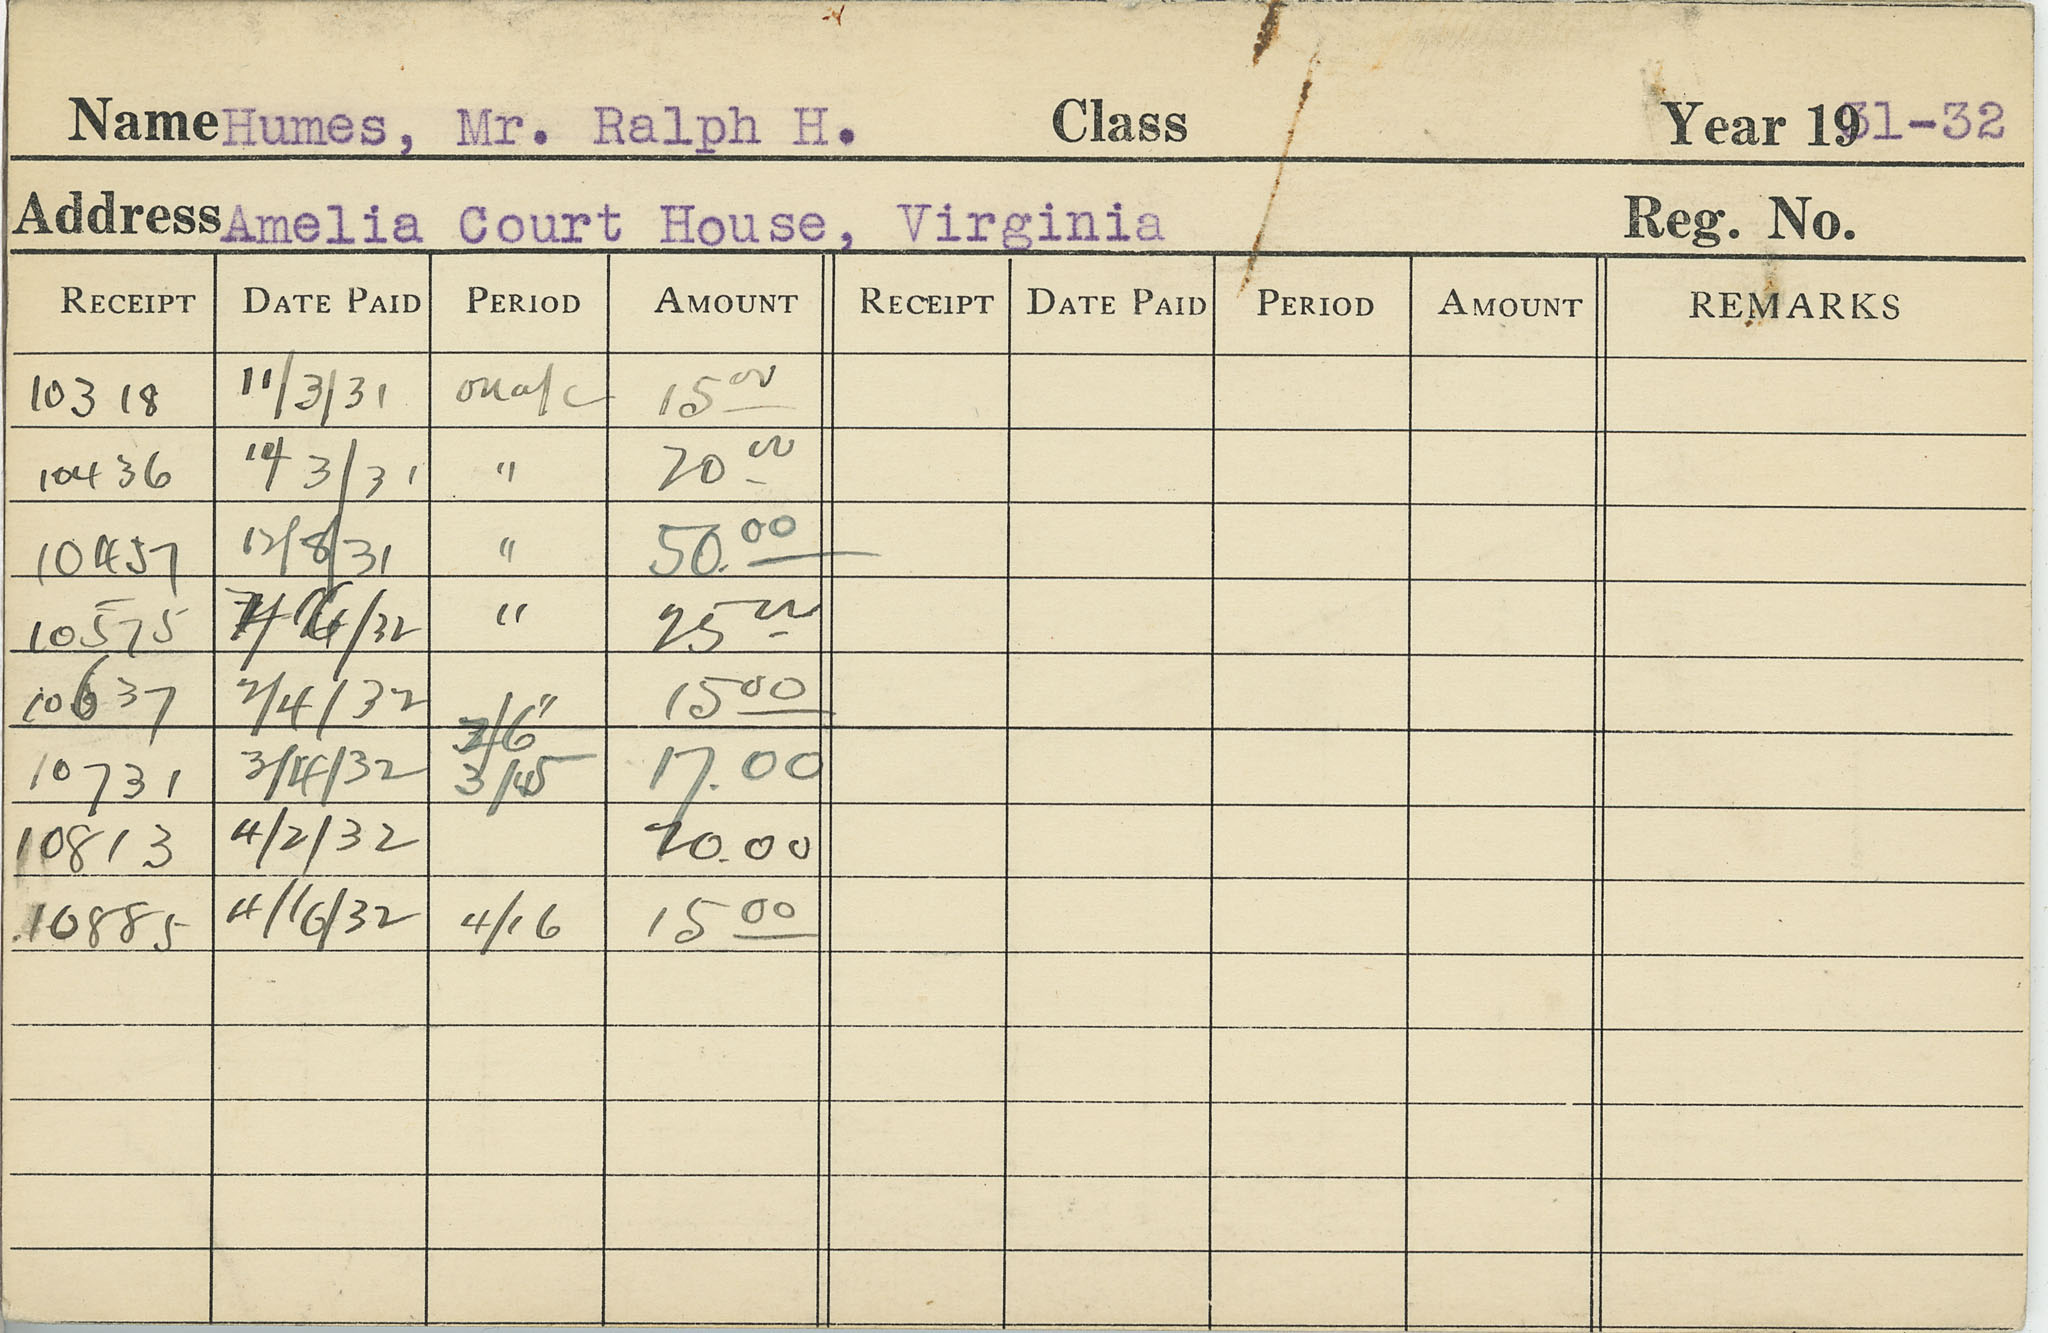 Name Humes, Mr. Ralph H. Class Year 1931-32
Address Amelia Court House, Virginia Reg. No.
RECEIPT DATE PAID PERIOD AMOUNT RECEIPT DATE PAID PERIOD AMOUNT REMARKS
10318 11/3/31 on a/c 15 00
10436 3/31 " 20 00
10457 12/8/31 " 50.00
10575 /32 " 25 00
10637 2/4/32 " 15 00
3/6
10731 3/4/32 3/45 17.00
10813 4/2/32 20.00
10885 4/16/32 4/16 15 00